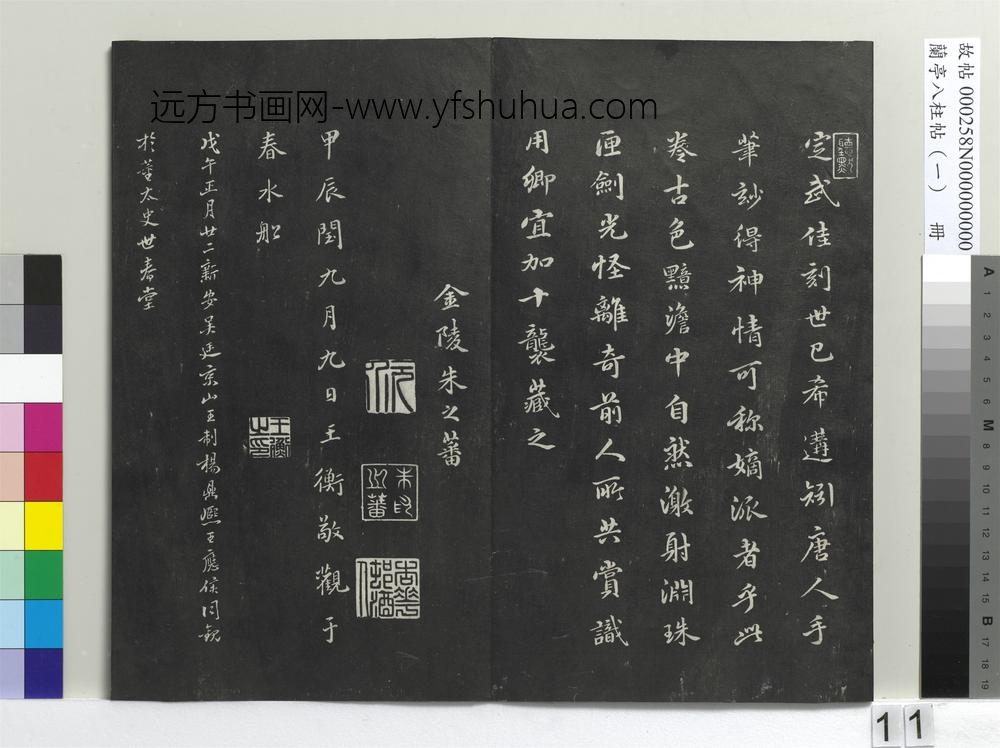 远方书画网-www.yfshuhua.com
故帖 000258N000000000
蘭亭八柱帖(一) 冊
定武佳刻世已希遘矧唐人手
筆玅得神情可称嫡派者乎此
卷古色黯澹中自然激射淵珠
匣劍光怪離奇前人所共賞識
用卿宜加十襲藏之
金陵朱之蕃
朱之蕃印
甲辰閏九月九日王衡敬觀于
春水船
王衡之印
戊午正月廿二新安吳廷京山王制楊鼎熙王應侯同觀
於董太史世春堂
A 1 2 3 4 5 6 M 8 9 10 11 12 13 14 15 B 17 18 19
11